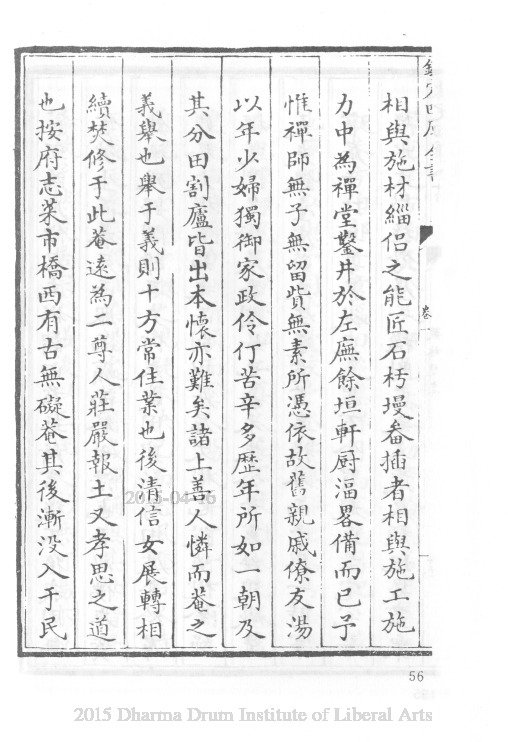 欽定四庫全書
卷一
相與施材緇侶之能匠石杇墁畚插者相與施工施
力中為禪堂鑿井於左廡餘垣軒厨湢畧備而已予
惟禪師無子無留貲無素所憑依故舊親戚僚友湯
以年少婦獨御家政伶仃苦辛多歴年所如一朝及
其分田割廬皆出本懷亦難矣諸上善人憐而菴之
義舉也舉于義則十方常住業也後清信女展轉相
續焚修于此菴遠為二尊人莊嚴報土又孝思之道
也按府志菜市橋西有古無礙菴其後漸没入于民
2015-04-16
56
2015 Dharma Drum Institute of Liberal Arts